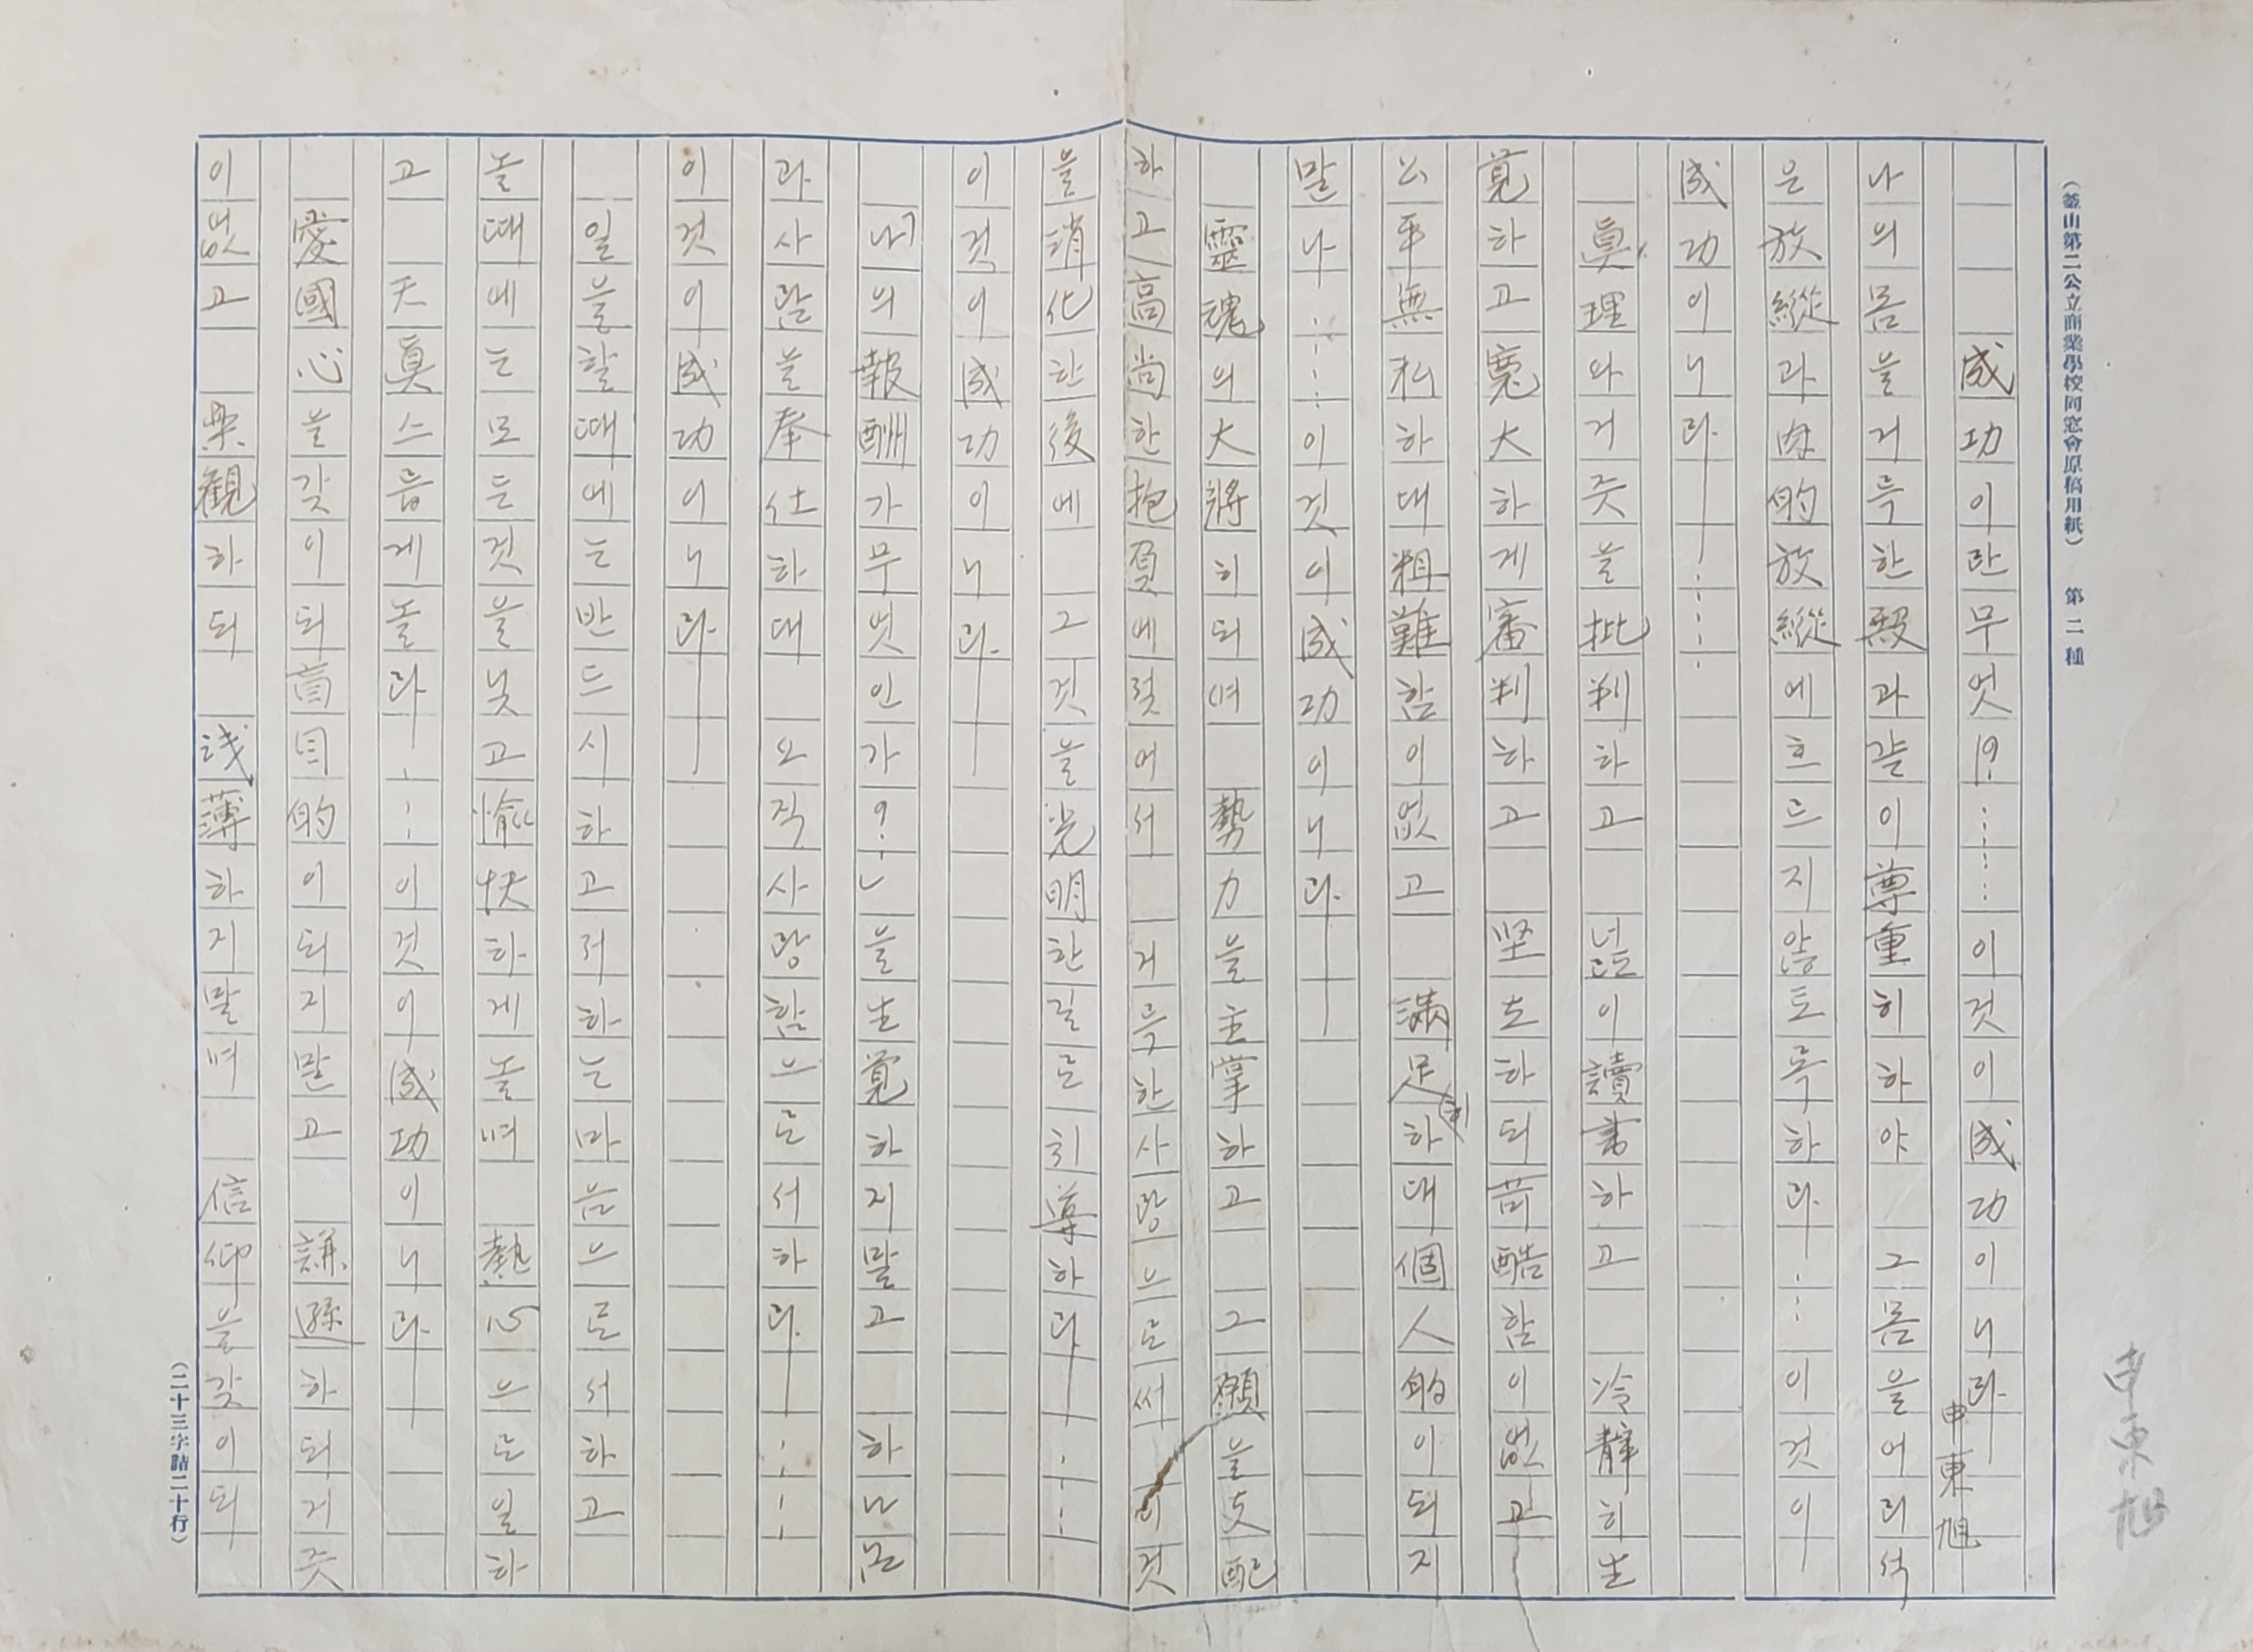 (釜山第二公立商業學校同窓會原稿用紙) 第二種
申東旭
成功이란무엇!?……이것이成功이니라―
申東旭
나의몸을거륵한殿과같이尊重히하야 그몸을어리석
은放縱과肉的放縱에흐르지않도록하라―……이것이
成功이니라―……
眞理와거즛을批判하고 넓이讀書하고 冷靜히生
覺하고寬大하게審判하고 坚초하되苛酷함이없고―
公平無私하대粗難함이없고 滿足히하대個人的이되지
말나……이것이成功이니라―
靈魂의大將히되며 勢力을主掌하고 그願을支配
하고高尚한抱負에젖어서 거륵한사랑으로써 이것
을消化한後에 그것을光明한길로引導하라―……
이것이成功이니라―
「나의報酬가무엇인가?」을生覺하지말고 하나님
과사람을奉仕하대 오직사랑함으로서하라―……
이것이成功이니라―
일을할때에는반드시하고저하는마음으로서하고
놀때에는모든것을닞고愉快하게놀며 熱心으로일하
고 天眞스릅게놀라―……이것이成功이니라―
愛國心을갖이되盲目的이되지말고 謙遜하되거즛
이없고 樂観하되 淺薄하지말며 信仰을갖이되
(二十三字詰二十行)